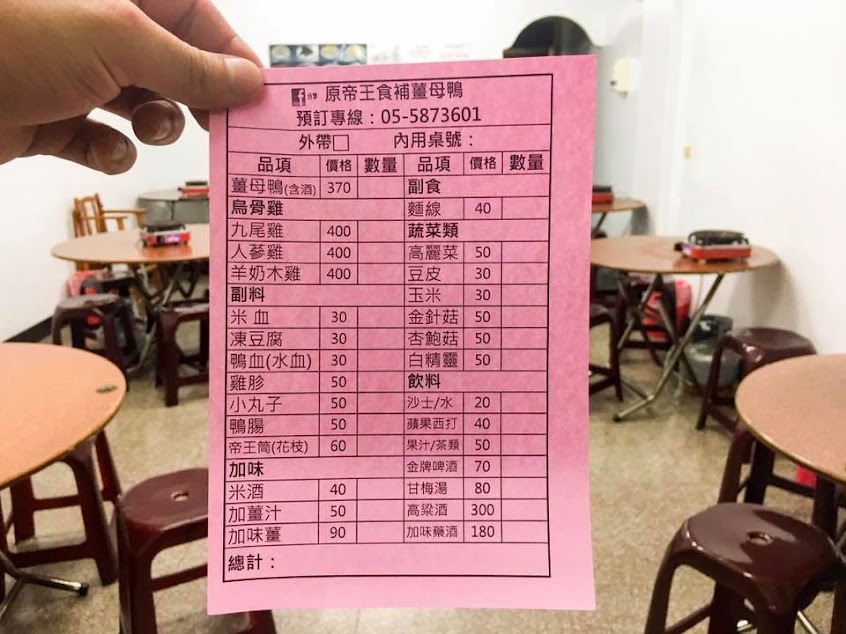 分享 原帝王食補薑母鴨
預訂專線：05-5873601
外帶□ 內用桌號：
品項 價格 數量 品項 價格 數量
薑母鴨(含酒) 370 副食
烏骨雞 麵線 40
九尾雞 400 蔬菜類
人蔘雞 400 高麗菜 50
羊奶木雞 400 豆皮 30
副料 玉米 30
米血 30 金針菇 50
凍豆腐 30 杏鮑菇 50
鴨血(水血) 30 白精靈 50
雞胗 50 飲料
小丸子 50 沙士/水 20
鴨腸 50 蘋果西打 40
帝王筒(花枝) 60 果汁/茶類 50
加味 金牌啤酒 70
米酒 40 甘梅湯 80
加薑汁 50 高粱酒 300
加味薑 90 加味藥酒 180
總計：